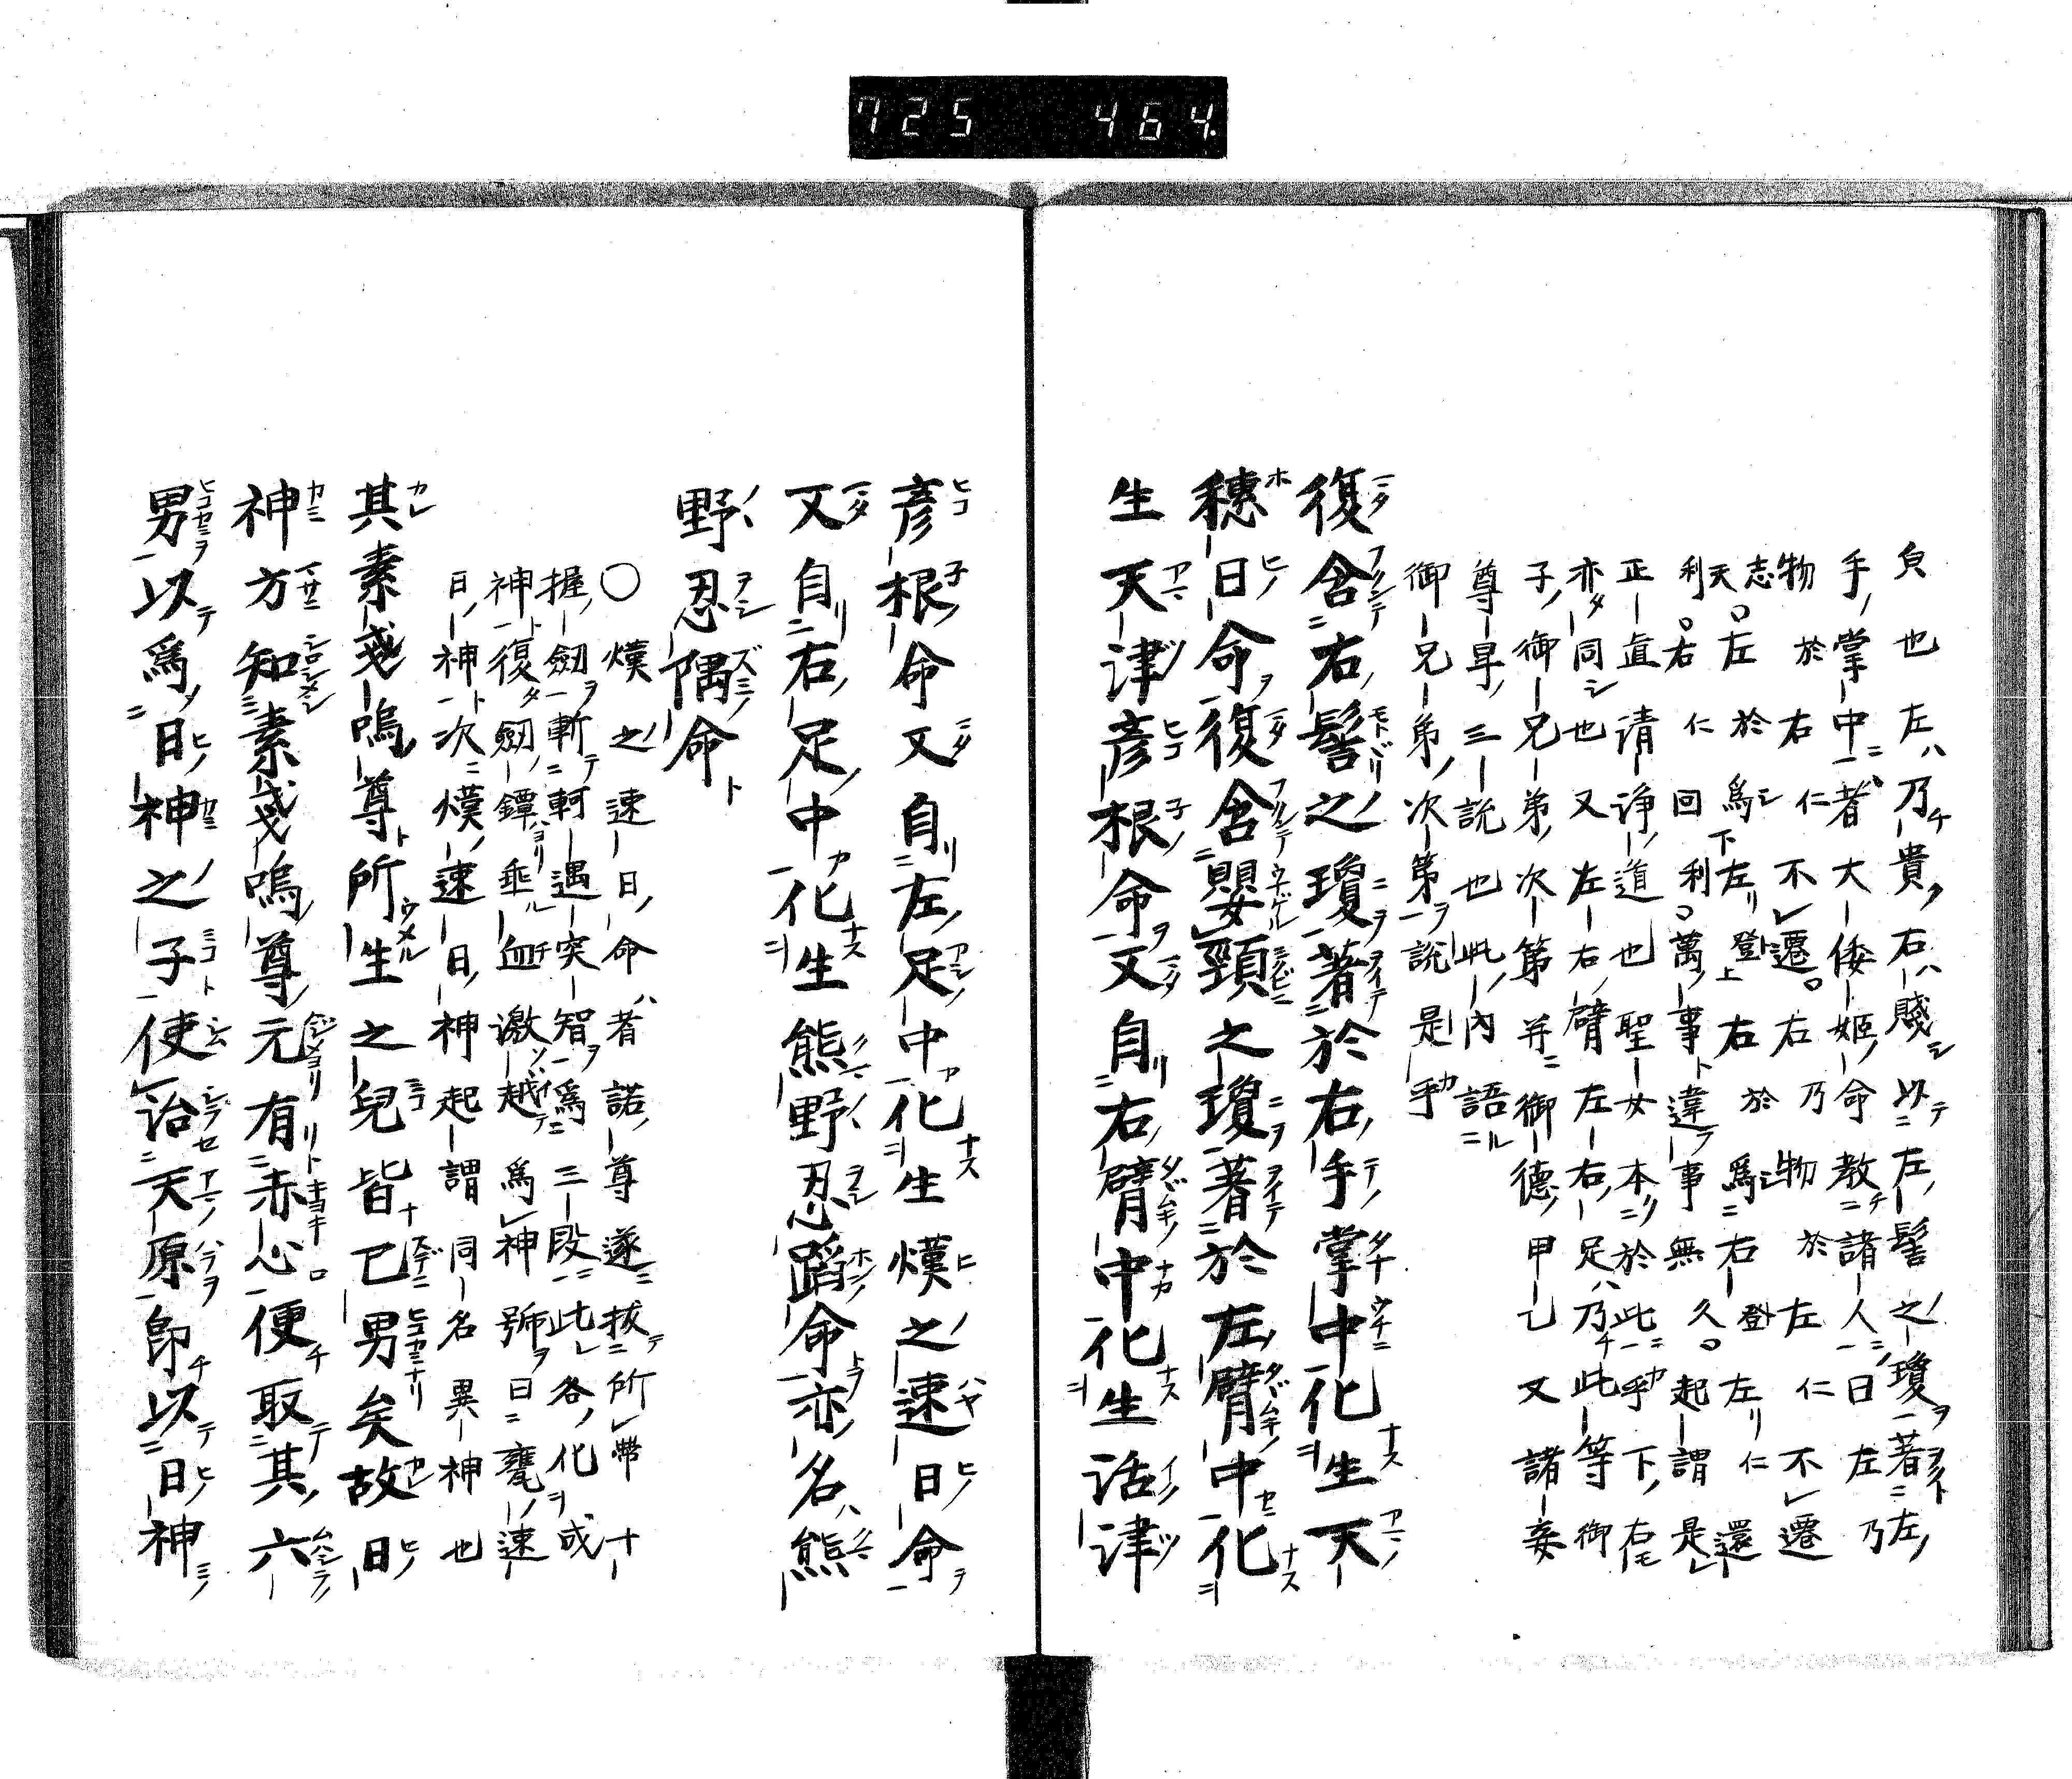 725 464
負也左ハ乃チ貴ク右ハ賤シ以テ左ノ髻之瓊ヲ著左ノ
手ノ掌中ニ者大倭姫ノ命教諸人曰左乃
物於右仁不遷。右乃物於左仁不遷
志天。左於為下左リ登上右於為右登左リ仁還
利。右仁回利。萬事違事無久。起謂是
正直清浄ノ道也聖女本ニ於此乎下ノ右モ
亦同シ也又左右ノ臂左右ノ足ハ乃チ此等御
子ノ御兄弟ノ次第并ニ御徳ノ甲乙又諸妾
尊卑ノ三説也此ノ内語ル
御兄弟ノ次第ヲ説是乎
復含右ノ髻之瓊ヲ著於右ノ手掌中化生天
穂日命ヲ復含嬰頸之瓊ヲ著於左ノ臂中化
生天津彦根命ヲ又自右ノ臂中化生活津
彦根命又自左ノ足中化生熯之速日命
又自右ノ足ノ中化生熊野忍蹈命亦名ハ熊
野忍隅命ト
○熯之速日ノ命ハ者諾ノ尊遂ニ抜テ所帯十
握ノ劔ヲ斬テ軻遇突智ヲ為三段ニ此レ各ノ化ヲ成
神ト復タ劔ノ鐔ヨリ垂ル血激越為神号ヲ曰甕ノ速
日ノ神ト次ニ熯ノ速日ノ神起謂同名異神也
其素戔嗚尊ト所生之兒皆已男矣故日
神方知素戔嗚ノ尊ノ元有赤心便チ取テ其ノ六
男ヲ以テ為日ノ神之子使治天原ヲ即チ以テ日ノ神